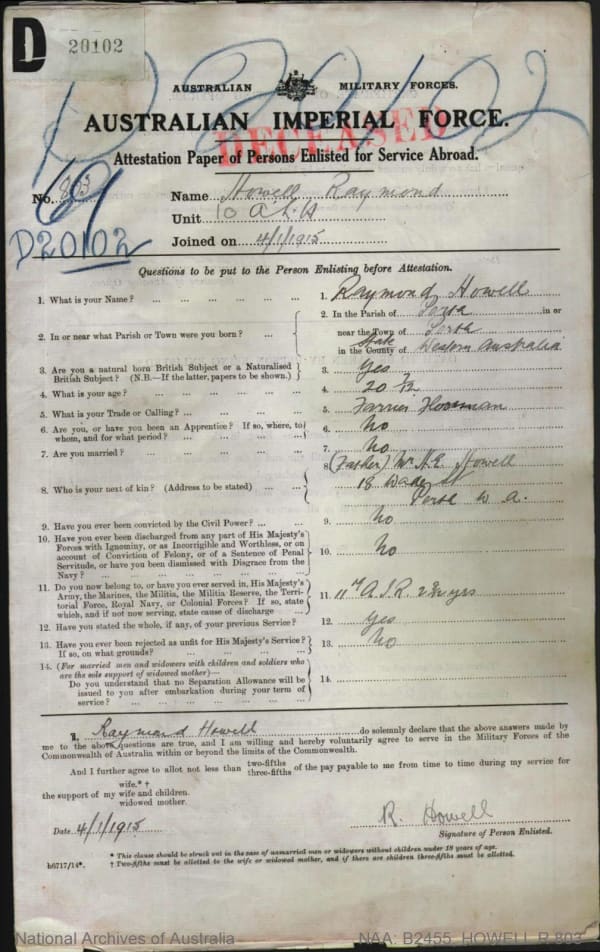 D
20102
D 20102
AUSTRALIAN MILITARY FORCES.
AUSTRALIAN IMPERIAL FORCE.
DECEASED
Attestation Paper of Persons Enlisted for Service Abroad.
No. 803
Name Howell Raymond
Unit 10 A.L.H
D20102
Joined on 4/1/1915
Questions to be put to the Person Enlisting before Attestation.
1. What is your Name? ... 1. Raymond Howell
2. In or near what Parish or Town were you born? ... 2. In the Parish of Perth in or
near the Town of Perth
in the County of State Western Australia
3. Are you a natural born British Subject or a Naturalised
British Subject? (N.B.—If the latter, papers to be shown.) 3. Yes
4. What is your age? ... 4. 20 7/12
5. What is your Trade or Calling? ... 5. Farrier
6. Are you, or have you been an Apprentice? If so, where, to
whom, and for what period? ... 6. No
7. Are you married? ... 7. No
8. Who is your next of kin? (Address to be stated) ... 8. (Father) Mr. Howell
18 St
Perth W A.
9. Have you ever been convicted by the Civil Power? ... 9. No
10. Have you ever been discharged from any part of His Majesty's
Forces with Ignominy, or as Incorrigible and Worthless, or on
account of Conviction of Felony, or of a Sentence of Penal
Servitude, or have you been dismissed with Disgrace from the
Navy? ... 10. No
11. Do you now belong to, or have you ever served in, His Majesty's
Army, the Marines, the Militia, the Militia Reserve, the Terri-
torial Force, Royal Navy, or Colonial Forces? If so, state
which, and if not now serving, state cause of discharge ... 11. 11th A.I.R. 2½ yrs
12. Have you stated the whole, if any, of your previous Service? 12. Yes
13. Have you ever been rejected as unfit for His Majesty's Service?
If so, on what grounds? ... 13. No
14. (For married men and widowers with children and soldiers who
are the sole support of widowed mother)—
Do you understand that no Separation Allowance will be
issued to you after embarkation during your term of
service? ... 14.
I, Raymond Howell do solemnly declare that the above answers made by
me to the above questions are true, and I am willing and hereby voluntarily agree to serve in the Military Forces of the
Commonwealth of Australia within or beyond the limits of the Commonwealth.
And I further agree to allot not less than two-fifths three-fifths of the pay payable to me from time to time during my service for
wife.*†
the support of my wife and children.
widowed mother.
Date 4/1/1915
R. Howell
Signature of Person Enlisted.
* This clause should be struck out in the case of unmarried men or widowers without children under 18 years of age.
† Two-fifths must be allotted to the wife or widowed mother, and if there are children three-fifths must be allotted.
b6717/14*.
National Archives of Australia
NAA: B2455, HOWELL R 803